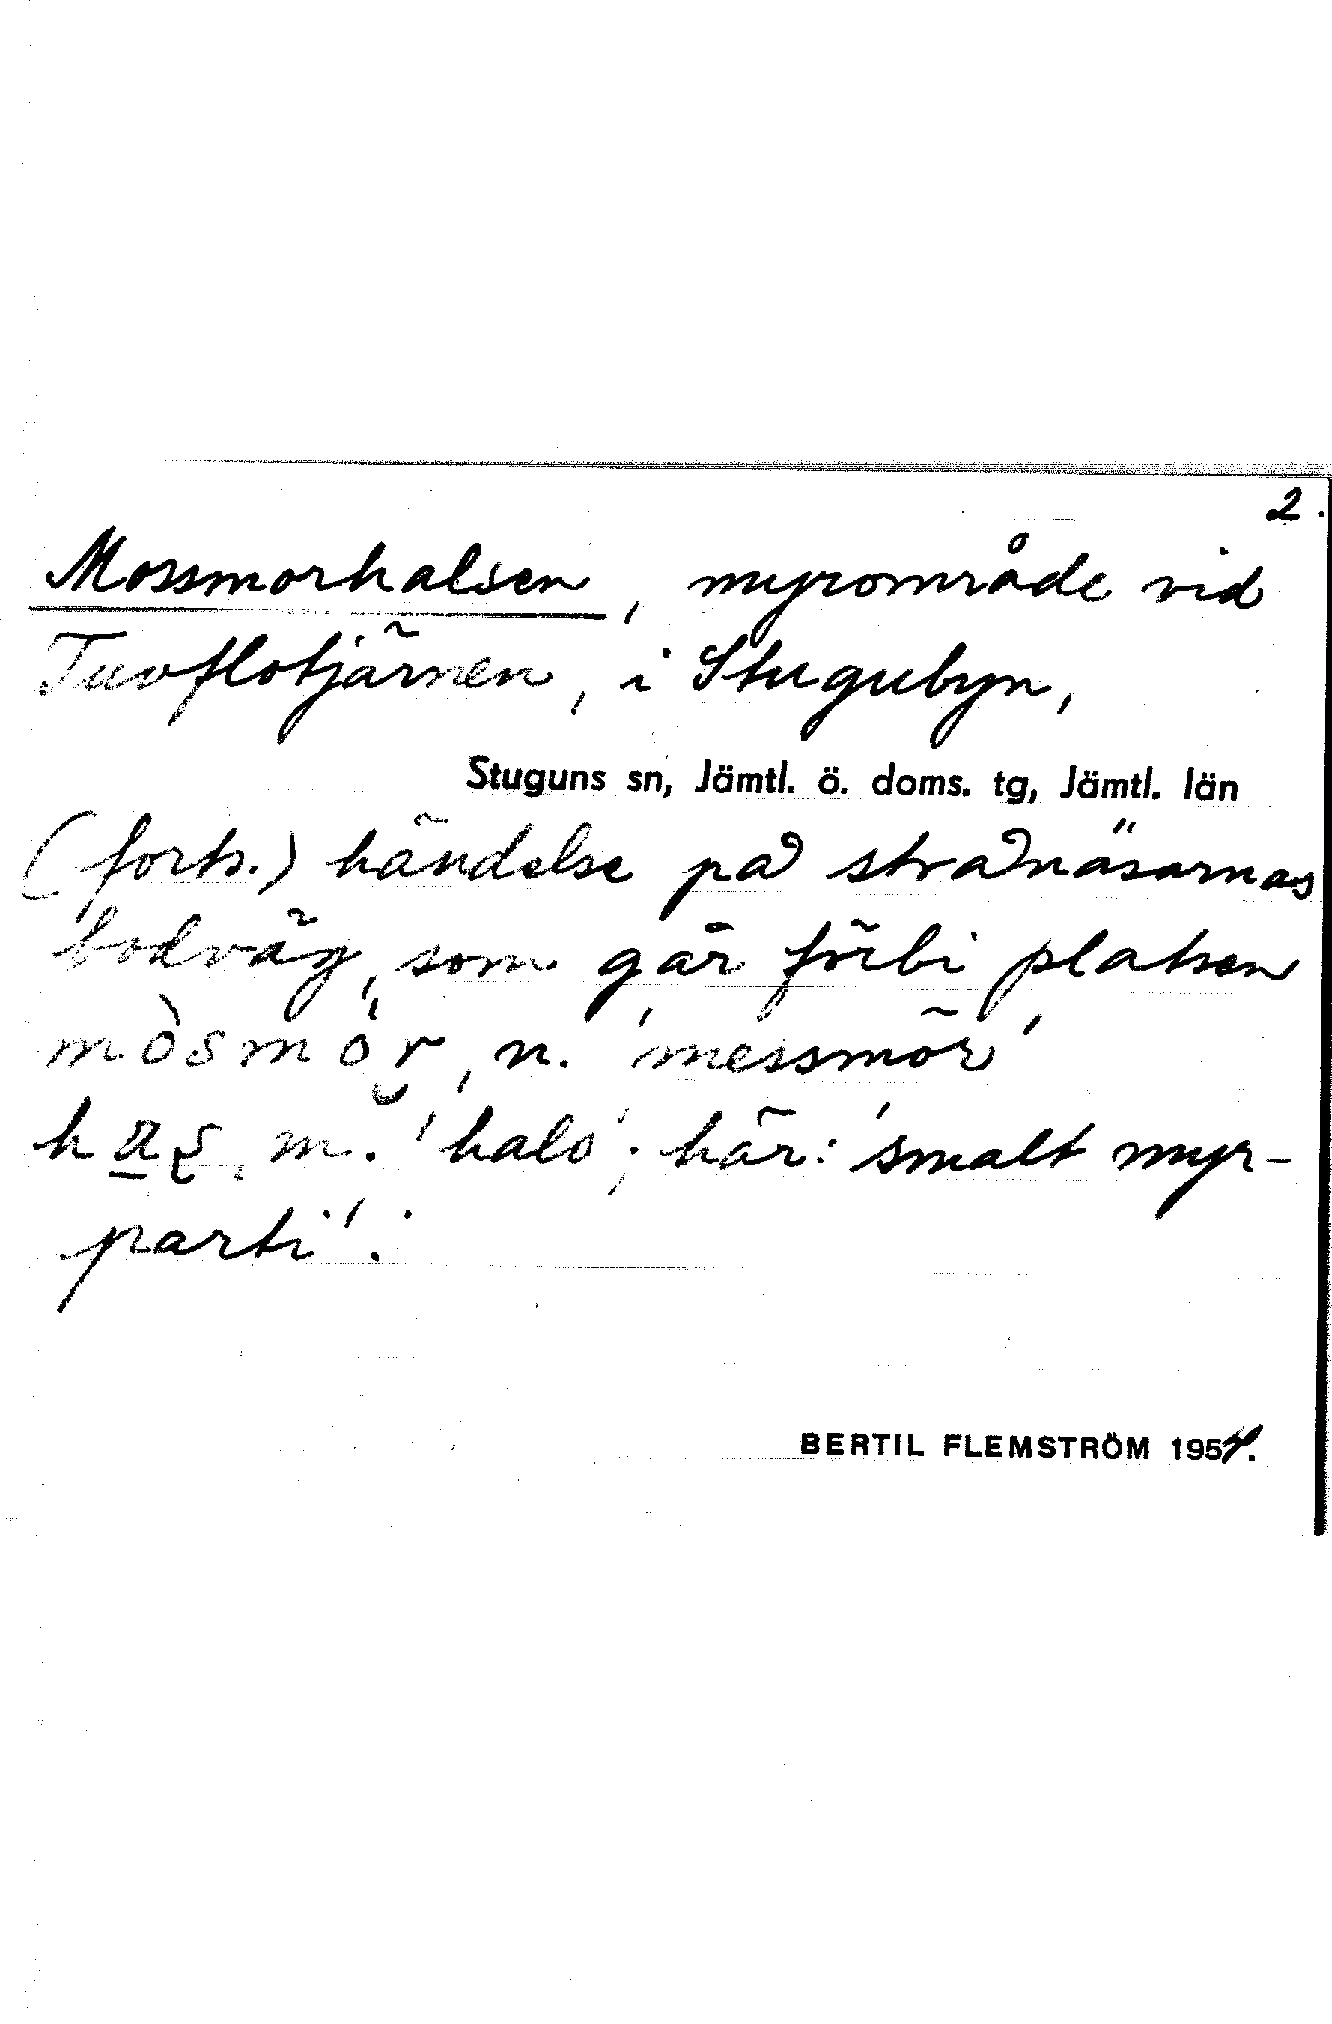 2.
Mossmorhalsen, myrområde vid
Tuvflotjärnen, i Stugubyn,
Stuguns sn, Jämtl. ö. doms. tg, Jämtl. län
(forts.) händelse på strånäsarnas
bodväg, som går förbi platsen
mòsmör, n. 'messmör'
m. 'hals'; här: 'smalt myr-
parti'.
BERTIL FLEMSTRÖM 1954.